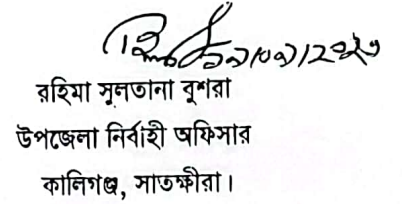 রহিমা সুলতানা বুশরা
উপজেলা নির্বাহী অফিসার
কালিগঞ্জ, সাতক্ষীরা।